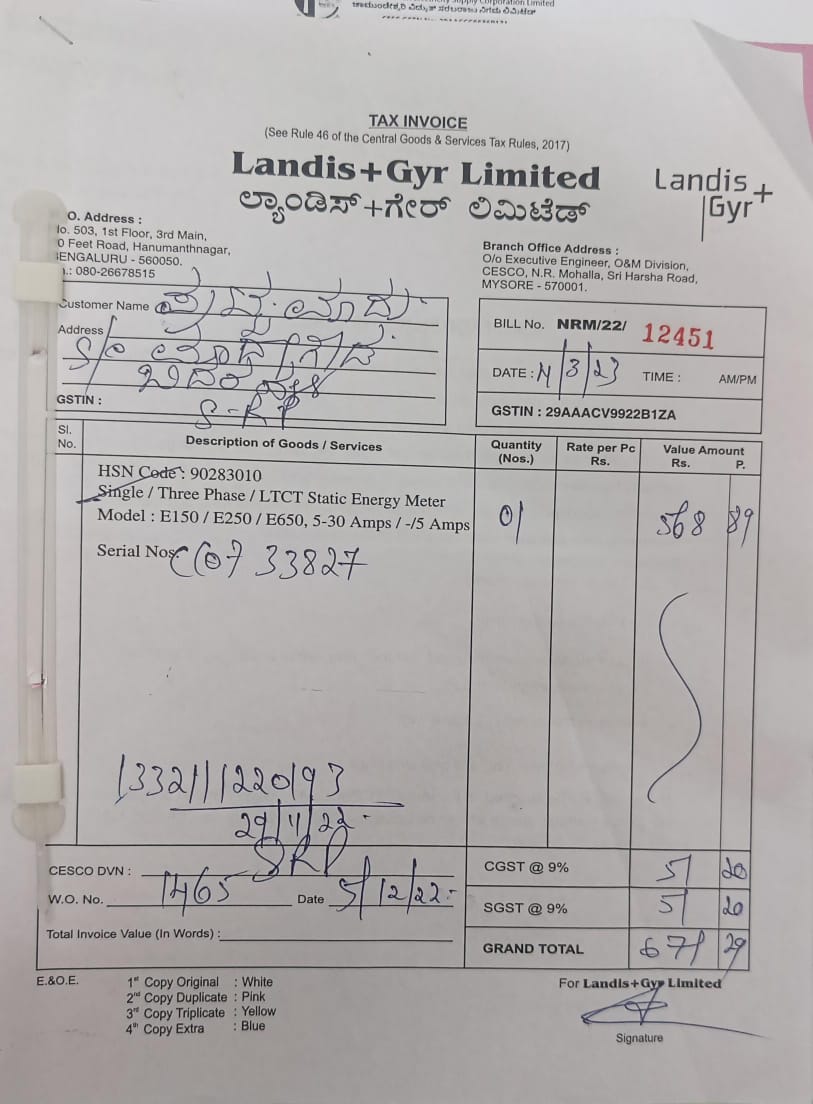 Supply Corporation Limited
ಚಾಮುಂಡೇಶ್ವರಿ ವಿದ್ಯುತ್ ಸರಬರಾಜು ನಿಗಮ ಲಿಮಿಟೆಡ್
TAX INVOICE
(See Rule 46 of the Central Goods & Services Tax Rules, 2017)
Landis+Gyr Limited
ಲ್ಯಾಂಡಿಸ್+ಗೇರ್ ಲಿಮಿಟೆಡ್
Landis+
Gyr
O. Address :
No. 503, 1st Floor, 3rd Main,
0 Feet Road, Hanumanthnagar,
BENGALURU - 560050.
.: 080-26678515
Branch Office Address :
O/o Executive Engineer, O&M Division,
CESCO, N.R. Mohalla, Sri Harsha Road,
MYSORE - 570001.
Customer Name
Address
S/o
GSTIN :
S-RP
BILL No. NRM/22/ 12451
DATE : /3/23 TIME : AM/PM
GSTIN : 29AAACV9922B1ZA
Sl. No. Description of Goods / Services Quantity (Nos.) Rate per Pc Rs. Value Amount Rs. P.
HSN Code : 90283010
Single / Three Phase / LTCT Static Energy Meter
Model : E150 / E250 / E650, 5-30 Amps / -/5 Amps 01 568 89
Serial Nos. 33827
1332111220193
29/11/22
CESCO DVN : SRP
W.O. No. 1465 Date 5/12/22
Total Invoice Value (In Words) :
CGST @ 9% 51 20
SGST @ 9% 51 20
GRAND TOTAL 671 29
E.&O.E.
1st Copy Original : White
2nd Copy Duplicate : Pink
3rd Copy Triplicate : Yellow
4th Copy Extra : Blue
For Landis+Gyr Limited
Signature